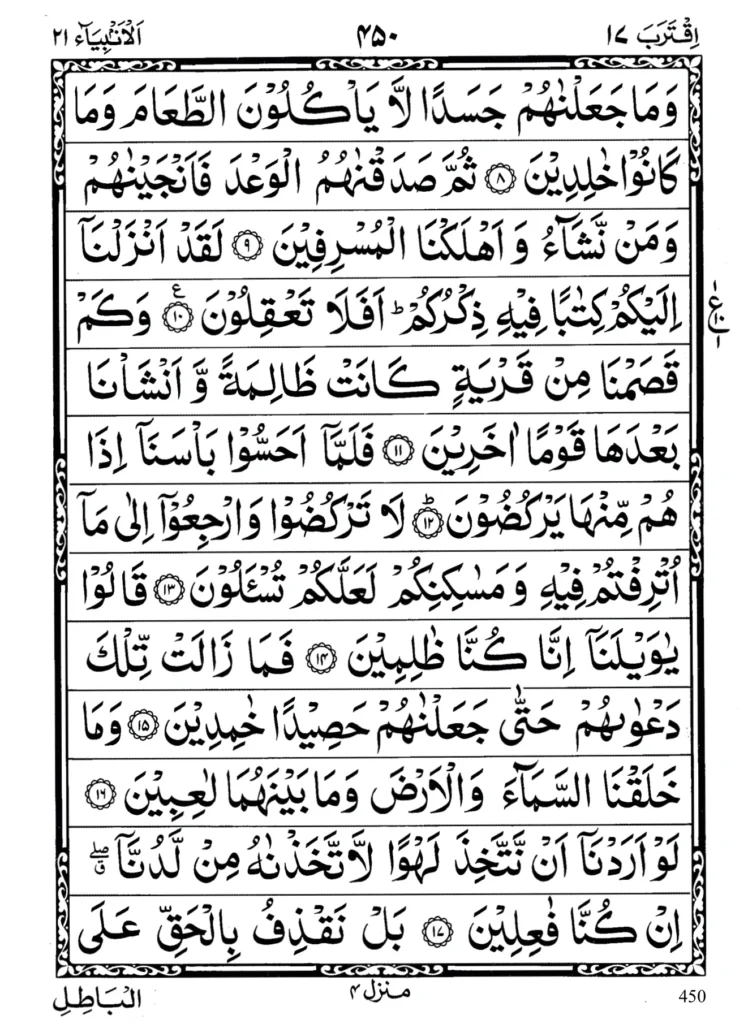 اِقْتَرَبَ ١٧ ٤٥٠ اَلْاَنْۢبِيَآء ٢١
وَمَا جَعَلْنٰهُمْ جَسَدًا لَّا يَاْكُلُوْنَ الطَّعَامَ وَمَا
كَانُوْا خٰلِدِيْنَ ۝٨ ثُمَّ صَدَقْنٰهُمُ الْوَعْدَ فَاَنْجَيْنٰهُمْ
وَمَنْ نَّشَآءُ وَ اَهْلَكْنَا الْمُسْرِفِيْنَ ۝٩ لَقَدْ اَنْزَلْنَاۤ
اِلَيْكُمْ كِتٰبًا فِيْهِ ذِكْرُكُمْؕ اَفَلَا تَعْقِلُوْنَ ۝١٠ع وَكَمْ
ع ١٠ ١
قَصَمْنَا مِنْ قَرْيَةٍ كَانَتْ ظَالِمَةً وَّ اَنْشَاْنَا
بَعْدَهَا قَوْمًا اٰخَرِيْنَ ۝١١ فَلَمَّاۤ اَحَسُّوْا بَاْسَنَاۤ اِذَا
هُمْ مِّنْهَا يَرْكُضُوْنَ ۝١٢ؕ لَا تَرْكُضُوْا وَارْجِعُوْۤا اِلٰى مَاۤ
اُتْرِفْتُمْ فِيْهِ وَمَسٰكِنِكُمْ لَعَلَّكُمْ تُسْـَٔلُوْنَ ۝١٣ قَالُوْا
يٰوَيْلَنَاۤ اِنَّا كُنَّا ظٰلِمِيْنَ ۝١٤ فَمَا زَالَتْ تِّلْكَ
دَعْوٰىهُمْ حَتّٰى جَعَلْنٰهُمْ حَصِيْدًا خٰمِدِيْنَ ۝١٥ وَمَا
خَلَقْنَا السَّمَآءَ وَالْاَرْضَ وَمَا بَيْنَهُمَا لٰعِبِيْنَ ۝١٦
لَوْ اَرَدْنَاۤ اَنْ نَّتَّخِذَ لَهْوًا لَّاتَّخَذْنٰهُ مِنْ لَّدُنَّاۤ ۖق
اِنْ كُنَّا فٰعِلِيْنَ ۝١٧ بَلْ نَقْذِفُ بِالْحَقِّ عَلَى
الْبَاطِلِ منزل ٤ 450